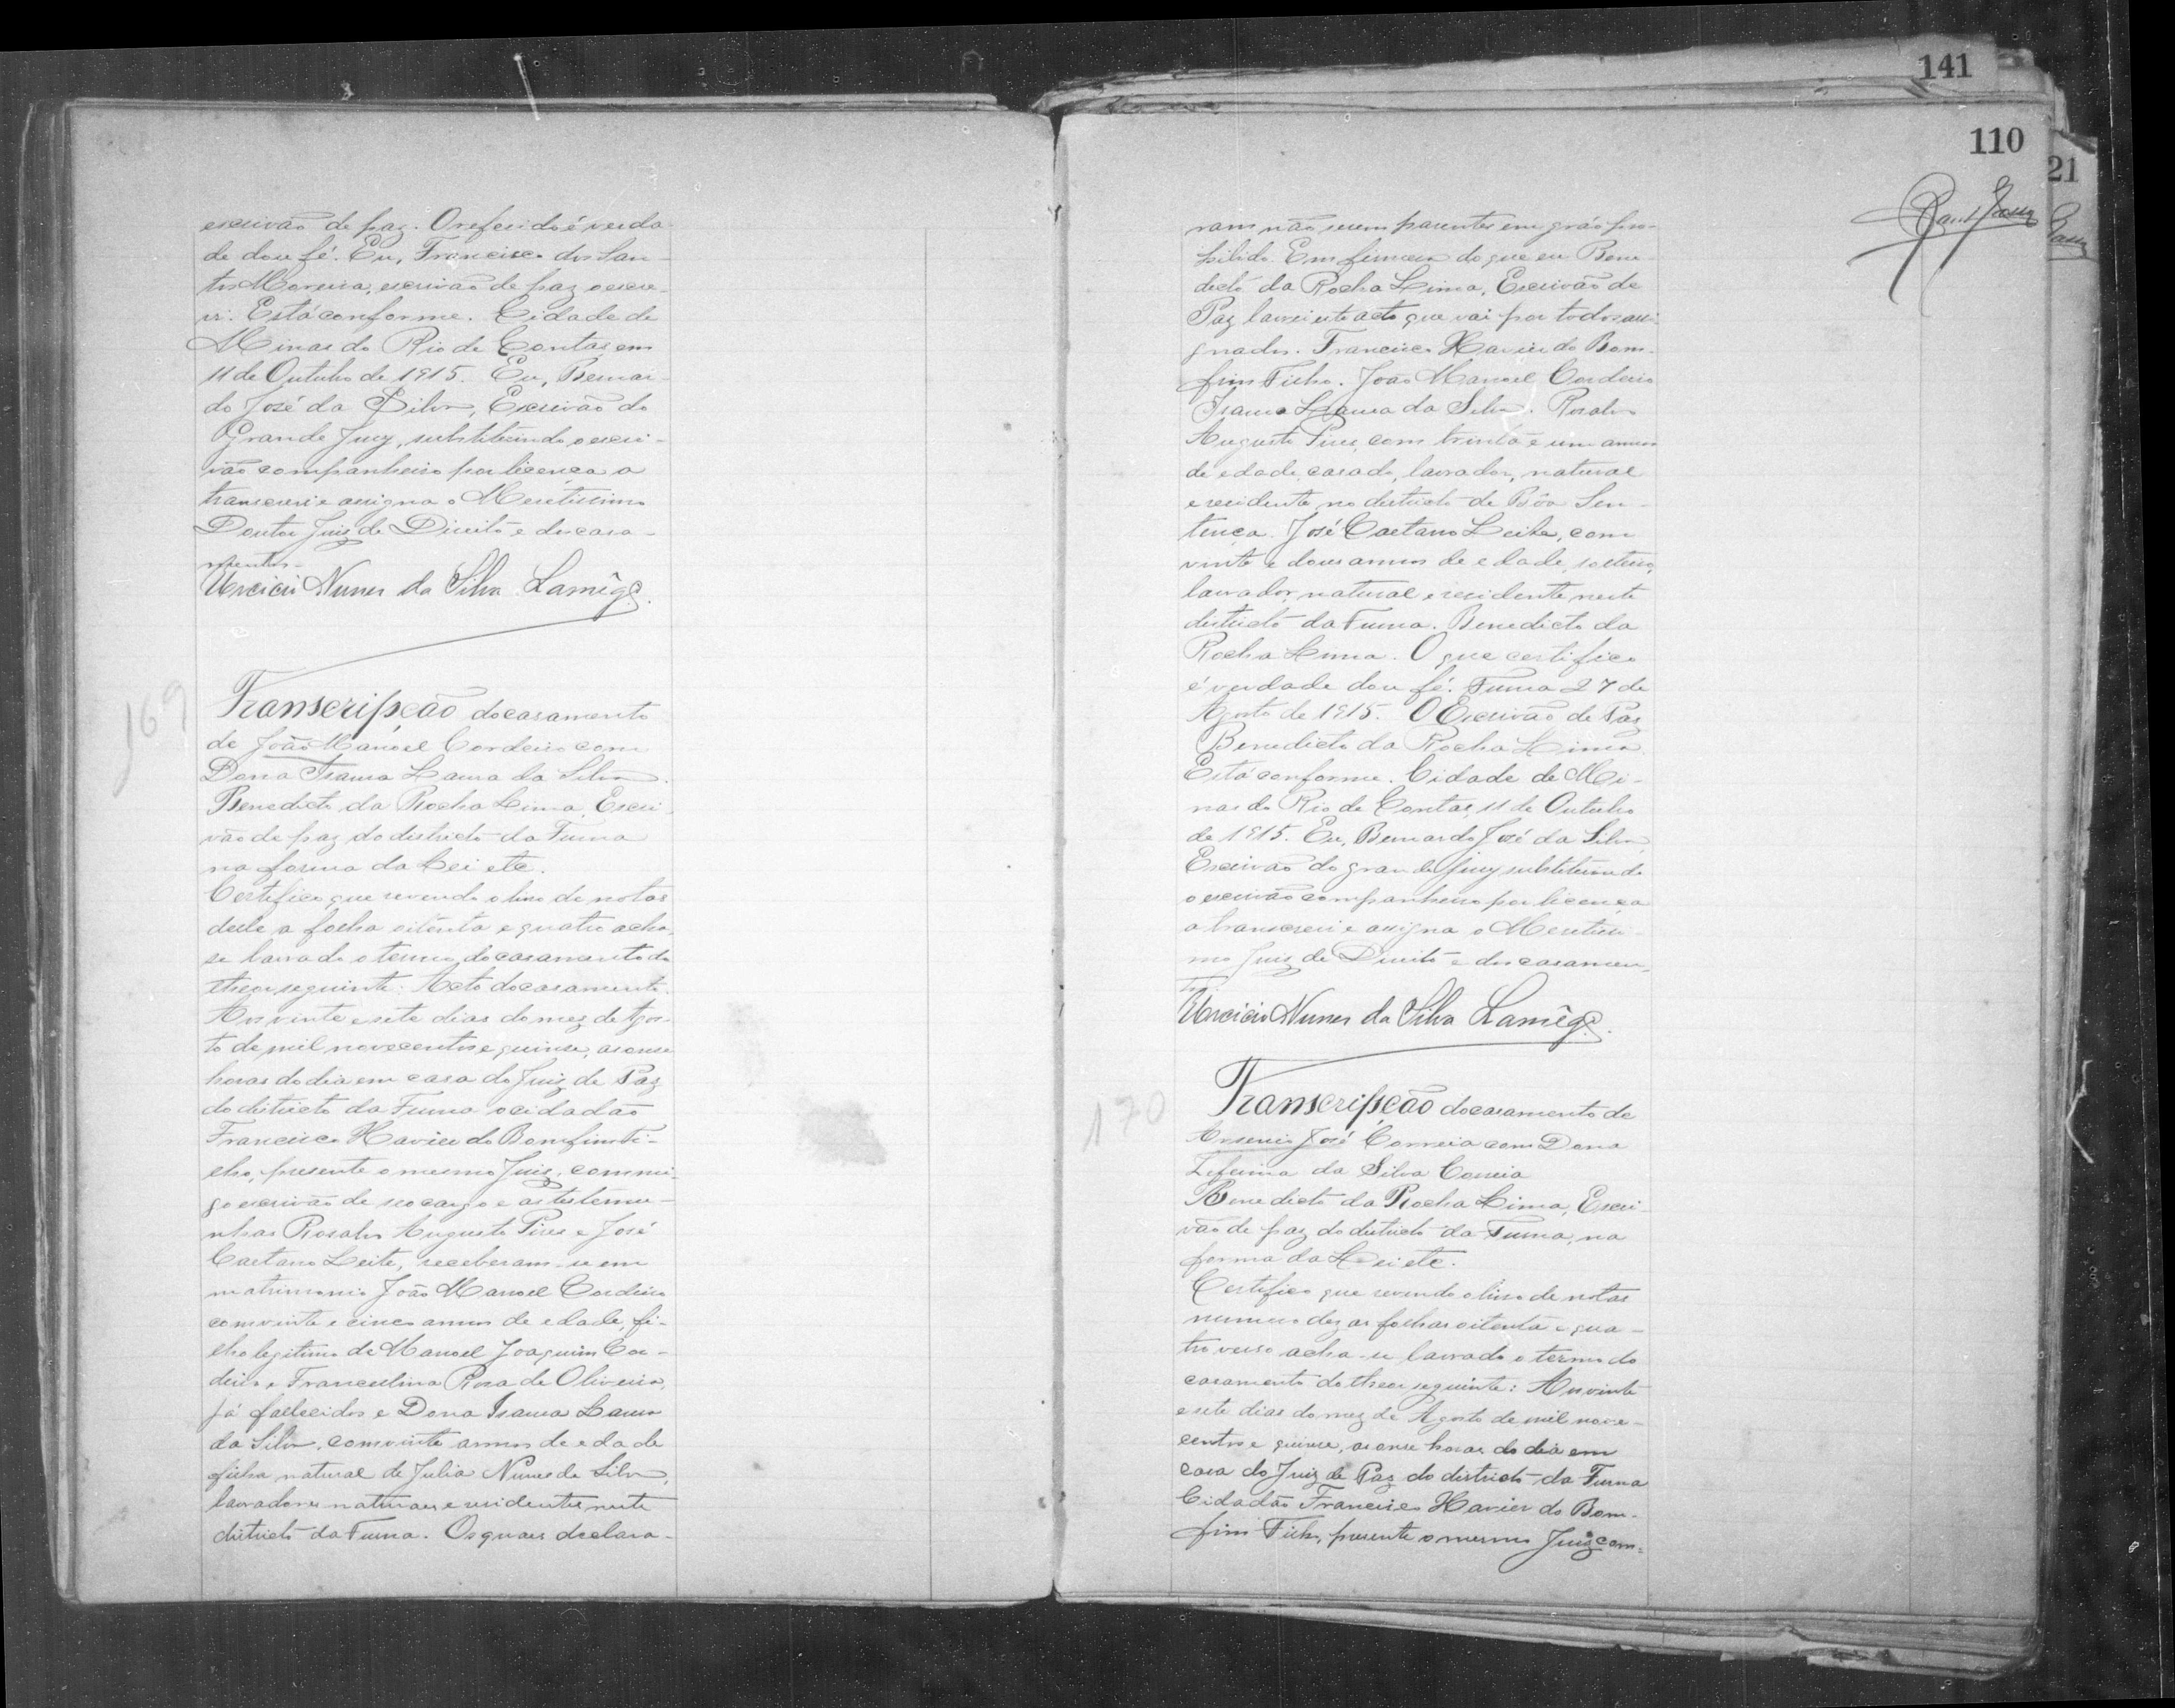 escrivão de paz. O referido é verda-
de dou fé. Eu, Francisco dos San-
tos Moreira, escrivão de paz o escre-
vi. Está conforme. Cidade de
Minas do Rio de Contas em
11 de Outubro de 1915. Eu, Bernar-
do José da Silva, Escrivão do
Grande Jury, substituindo o escri-
vão companheiro por licença a
transcrevi e assigna o Meretissimo
Doutor Juiz de Direito e dos casa-
mentos.
Nunes da Silva Lamêgo.
169
Transcripção do casamento
de João Manoel Cordeiro com
Dona Isaura Laura da Silva.
Benedicto da Rocha Lima, Escri-
vão de paz do districto da Furna
na forma da Lei etc.
Certifico que revendo o livro de notas
deste a folha oitenta e quatro acha-
se lavrado o termo do casamento do
theor seguinte: Acto do casamento.
Aos vinte e sete dias do mez de Agos-
to de mil novecentos e quinse, as onse
horas do dia em casa do Juiz de Paz
do districto da Furna o cidadão
Francisco Xavier do Bomfim Fi-
lho, presente o mesmo Juiz, commi-
go escrivão de seo cargo e as testemu-
nhas Rosalvo Augusto Pires e José
Caetano Leite, receberam-se em
matrimonio João Manoel Cordeiro
com vinte e cinco annos de edade, fi-
lho legitimo de Manoel Joaquim Cor-
deiro e Francelina Rosa de Oliveira,
já fallecidos e Dona Isaura Laura
da Silva, com vinte annos de edade
filha natural de Julia Nunes da Silva,
lavradores naturaes e residentes neste
districto da Furna. Os quaes declara-
141
110
21
ram não serem parentes em gráo pro-
hibido. Em firmesa do que eu Bene-
dicto da Rocha Lima, Escrivão de
Paz lavrei este acto que vai por todos assi-
gnados. Francisco Xavier do Bom-
fim Filho. João Manoel Cordeiro
Isaura Laura da Silva. Rosalvo
Augusto Pires, com trinta e um annos
de edade, casado, lavrador, natural
e residente no districto de Bôa Sen-
tença. José Caetano Leite, com
vinte e dous annos de edade, solteiro,
lavrador, natural e residente neste
districto da Furna. Benedicto da
Rocha Lima. O que certifico
é verdade dou fé. Furna 27 de
Agosto de 1915. O Escrivão de Paz
Benedicto da Rocha Lima.
Está conforme. Cidade de Mi-
nas do Rio de Contas, 11 de Outubro
de 1915. Eu, Bernardo José da Silva
Escrivão do grande jury substituindo
o escrivão companheiro por licença
a transcrevi e assigna o Meretissi-
mo Juiz de Direito e dos casamen-
tos.
Nunes da Silva Lamêgo.
170
Transcripção do casamento de
Arsenio José Correia com Dona
da Silva Correia
Benedicto da Rocha Lima, Escri-
vão de paz do districto da Furna, na
forma da Lei etc.
Certifico que revendo o livro de notas
numero dez as folhas oitenta e qua-
tro verso acha-se lavrado o termo do
casamento do theor seguinte: Aos vinte
e sete dias do mez de Agosto de mil nove-
centos e quinse, as onse horas do dia em
casa do Juiz de Paz do districto da Furna
Cidadão Francisco Xavier do Bom-
fim Filho, presente o mesmo Juiz com-